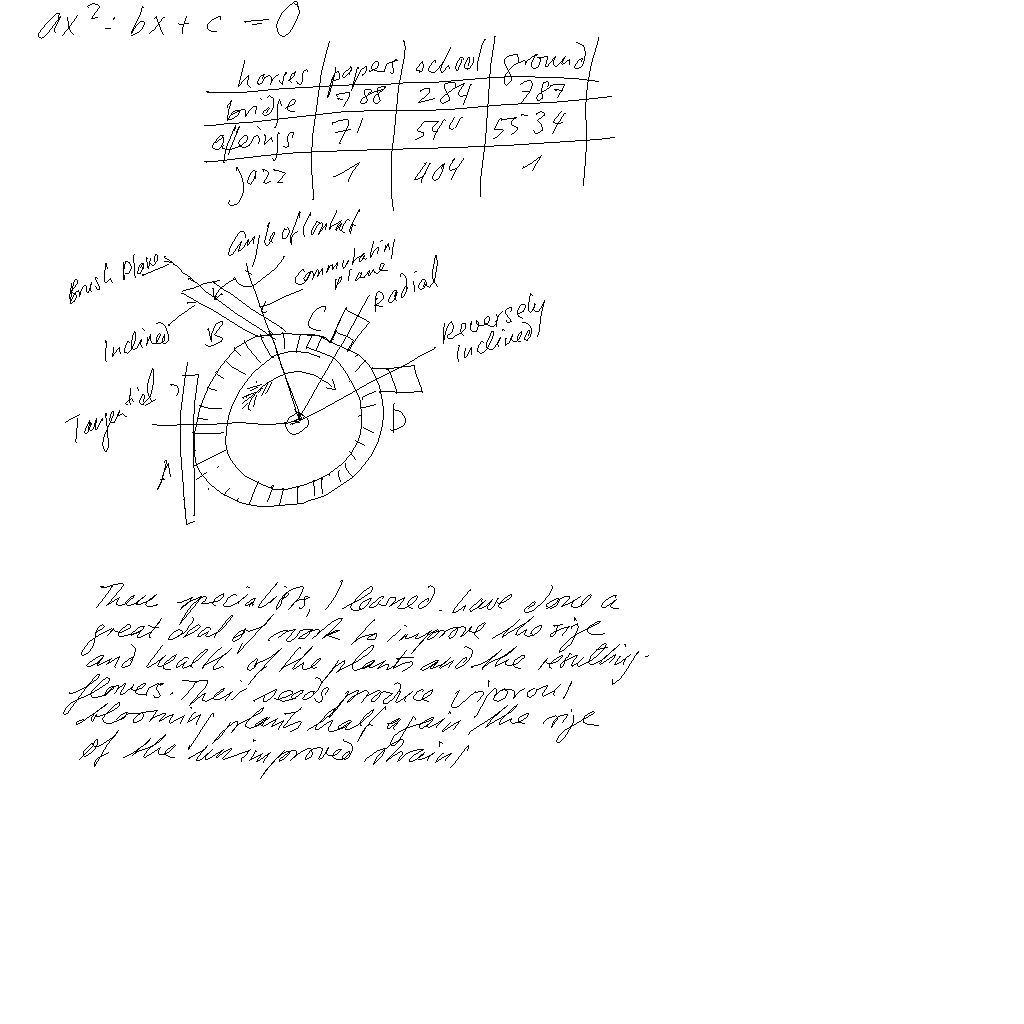 ax²: bx + c = 0
horses papers school ground
bridge 788 284 787
offerings 71 544 5534
jazz 1 404 1
Angle of Contact
Brush Plane
commutating
plane
Inclined
B
C
Radial
Reversely
Inclined
Tangential
A
D
These specialists, I learned. have done a
great deal of work to improve the size
and health of the plants and the resulting.
flowers. Their seeds produce vigorous
blooming plants half again the size
of the unimproved strains